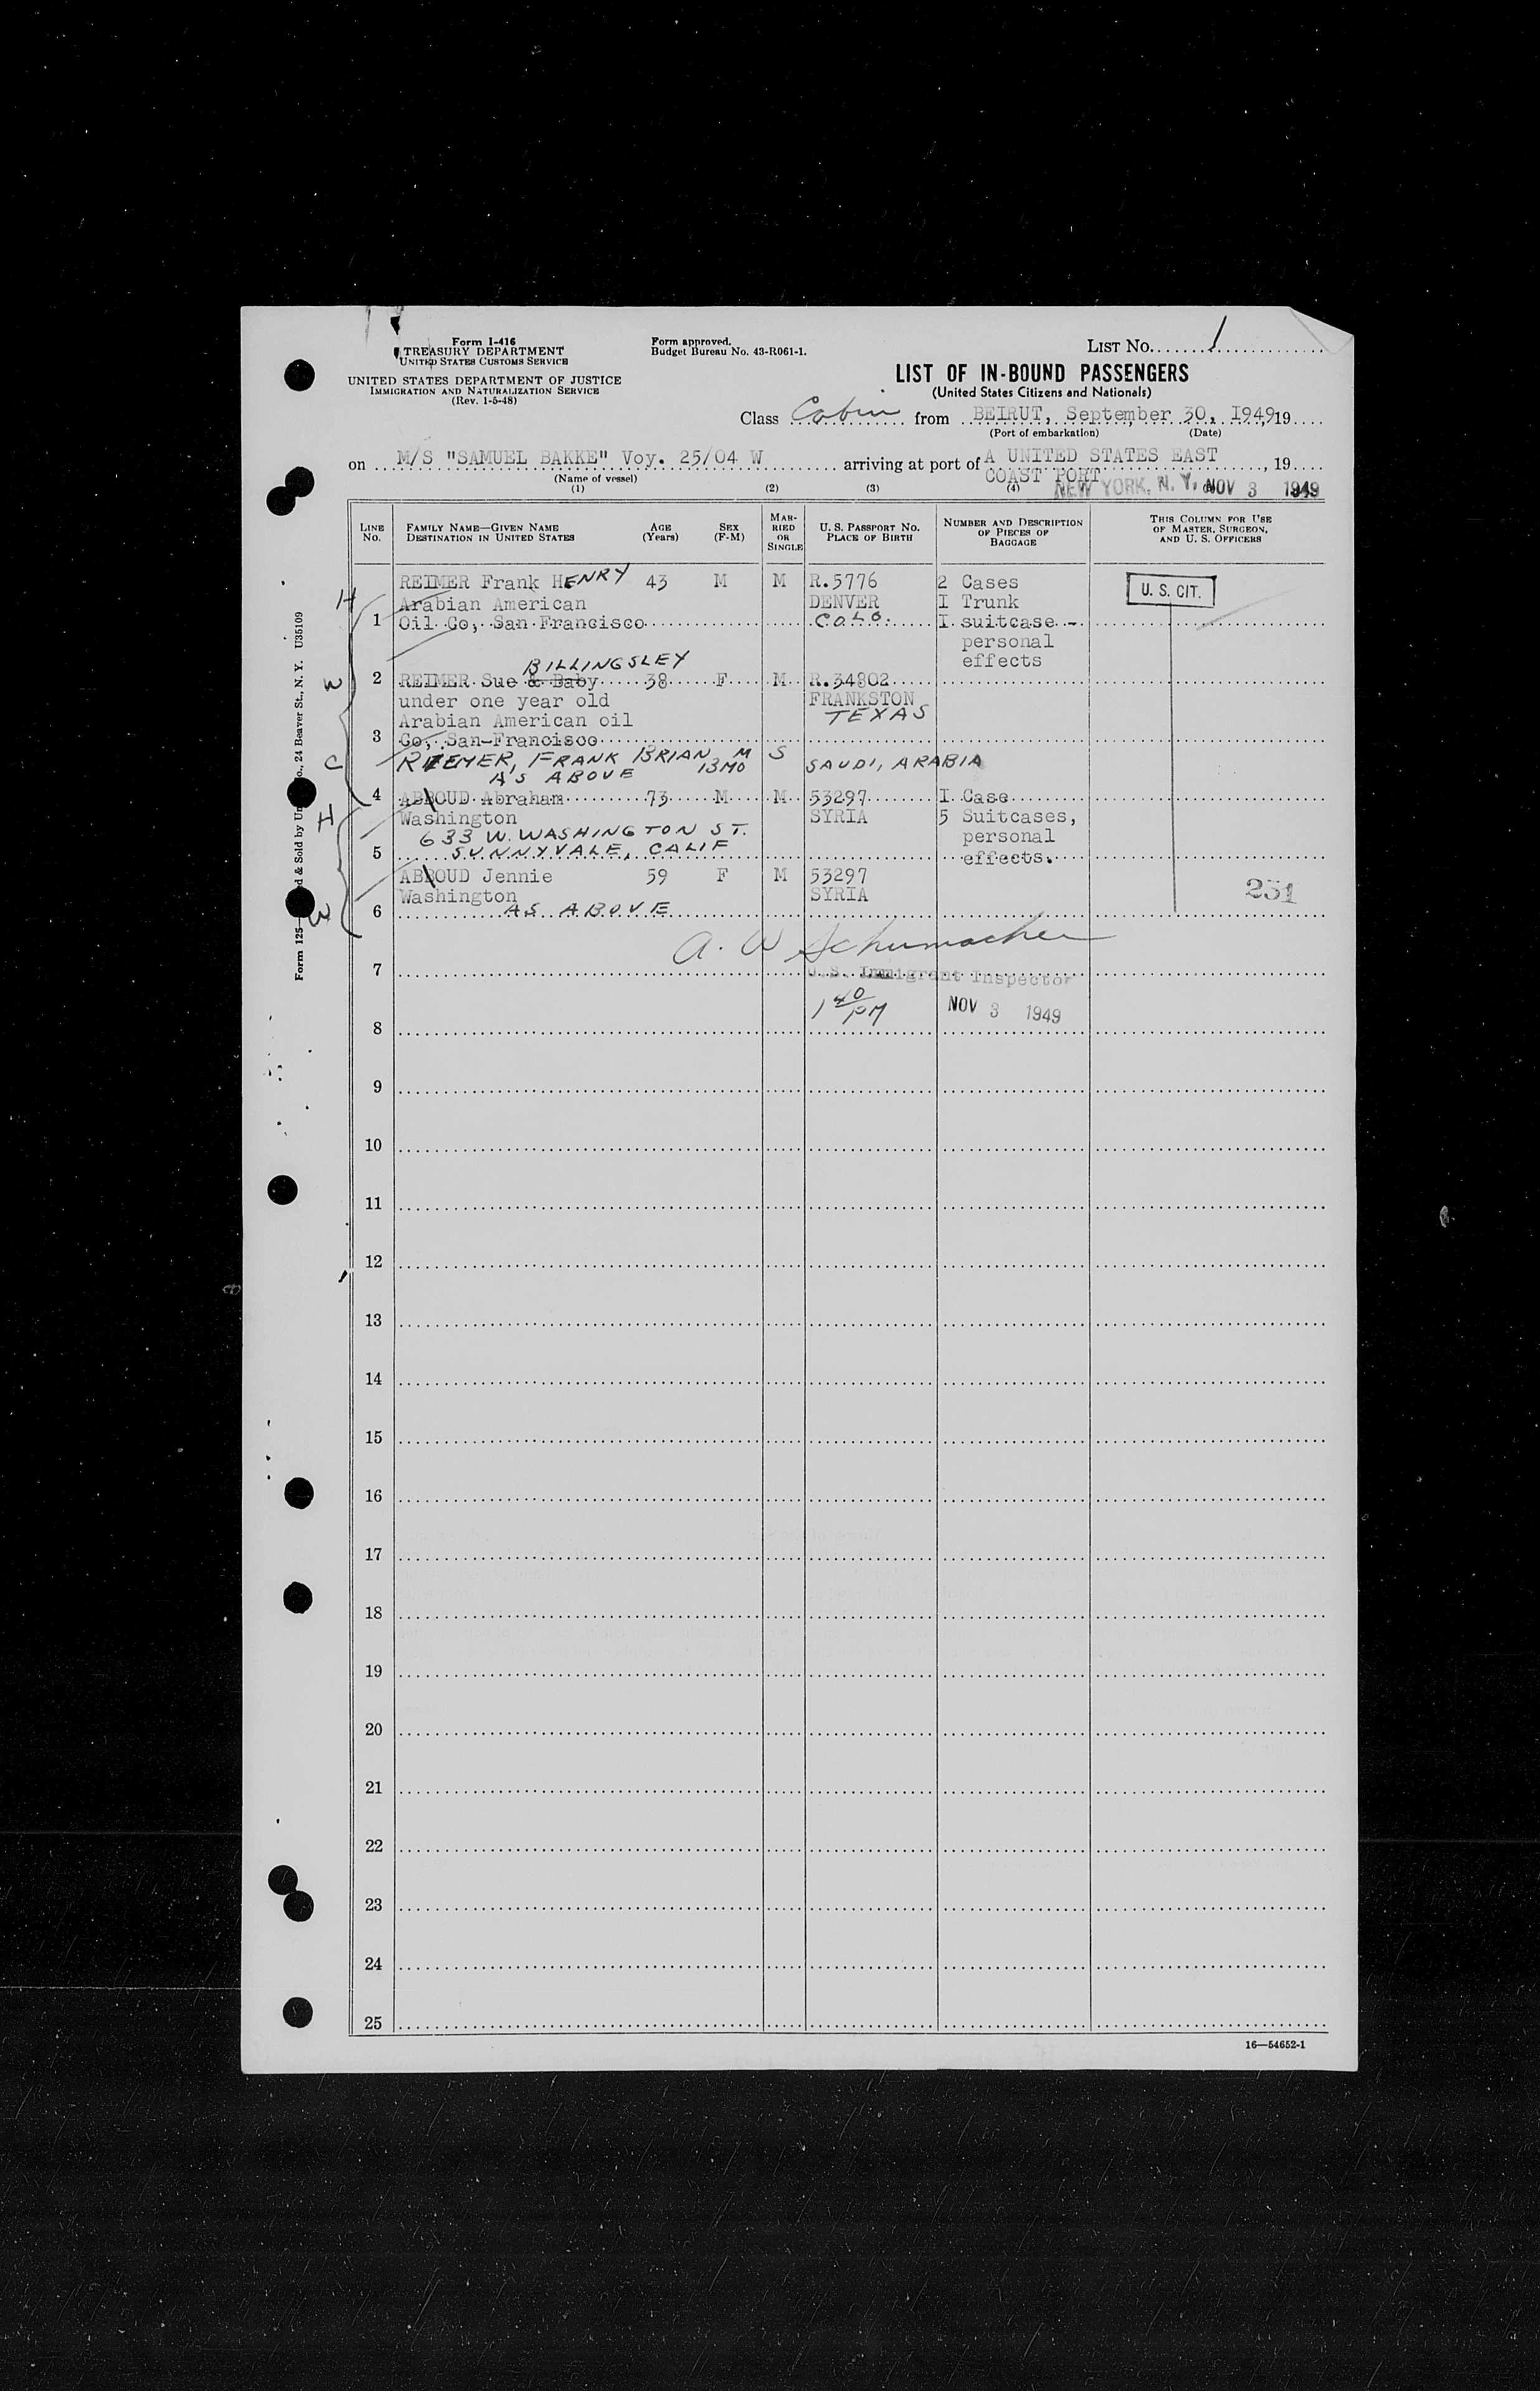 Form I-416
TREASURY DEPARTMENT
UNITED STATES CUSTOMS SERVICE
UNITED STATES DEPARTMENT OF JUSTICE
IMMIGRATION AND NATURALIZATION SERVICE
(Rev. 1-5-48)
Form approved.
Budget Bureau No. 43-R061-1.
LIST No. 1
LIST OF IN-BOUND PASSENGERS
(United States Citizens and Nationals)
Class Cabin from BEIRUT, September 30, I949, 19
(Port of embarkation) (Date)
on M/S "SAMUEL BAKKE" Voy. 25/04 W arriving at port of A UNITED STATES EAST , 19
COAST PORT
(Name of vessel)
NEW YORK, N. Y. NOV 3 1949
(1) (2) (3) (4)
LINE No.
FAMILY NAME—GIVEN NAME
DESTINATION IN UNITED STATES
AGE (Years)
SEX (F-M)
MARRIED OR SINGLE
U. S. PASSPORT No.
PLACE OF BIRTH
NUMBER AND DESCRIPTION OF PIECES OF BAGGAGE
THIS COLUMN FOR USE OF MASTER, SURGEON, AND U. S. OFFICERS
REIMER Frank HENRY 43 M M R.5776 2 Cases U. S. CIT.
H Arabian American DENVER I Trunk
1 Oil Co, San Francisco COLO. I suitcase -
personal
effects
BILLINGSLEY
W 2 REIMER Sue & Baby 38 F M R.34802
under one year old FRANKSTON
Arabian American oil TEXAS
3 Co, San-Francisco
C REIMER, FRANK BRIAN M S SAUDI, ARABIA
AS ABOVE 13 MO
4 ABBOUD Abraham 73 M M 53297 I Case
H Washington SYRIA 5 Suitcases,
633 W. WASHINGTON ST. personal
5 SUNNYVALE, CALIF effects.
ABBOUD Jennie 59 F M 53297
Washington SYRIA 231
W 6 AS ABOVE
A. W Schumacher
7 U.S. Immigrant Inspector
1 40 PM NOV 3 1949
8
9
10
11
12
13
14
15
16
17
18
19
20
21
22
23
24
25
16—54652-1
Form 125— d & Sold by Un o., 24 Beaver St., N. Y. U35109